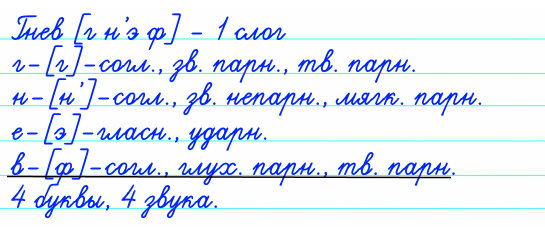 Гнев [г н'э ф] - 1 слог
г-[г]-согл., зв. парн., тв. парн.
н-[н']-согл., зв. непарн., мягк. парн.
е-[э]-гласн., ударн.
в-[ф]-согл., глух. парн., тв. парн.
4 буквы, 4 звука.